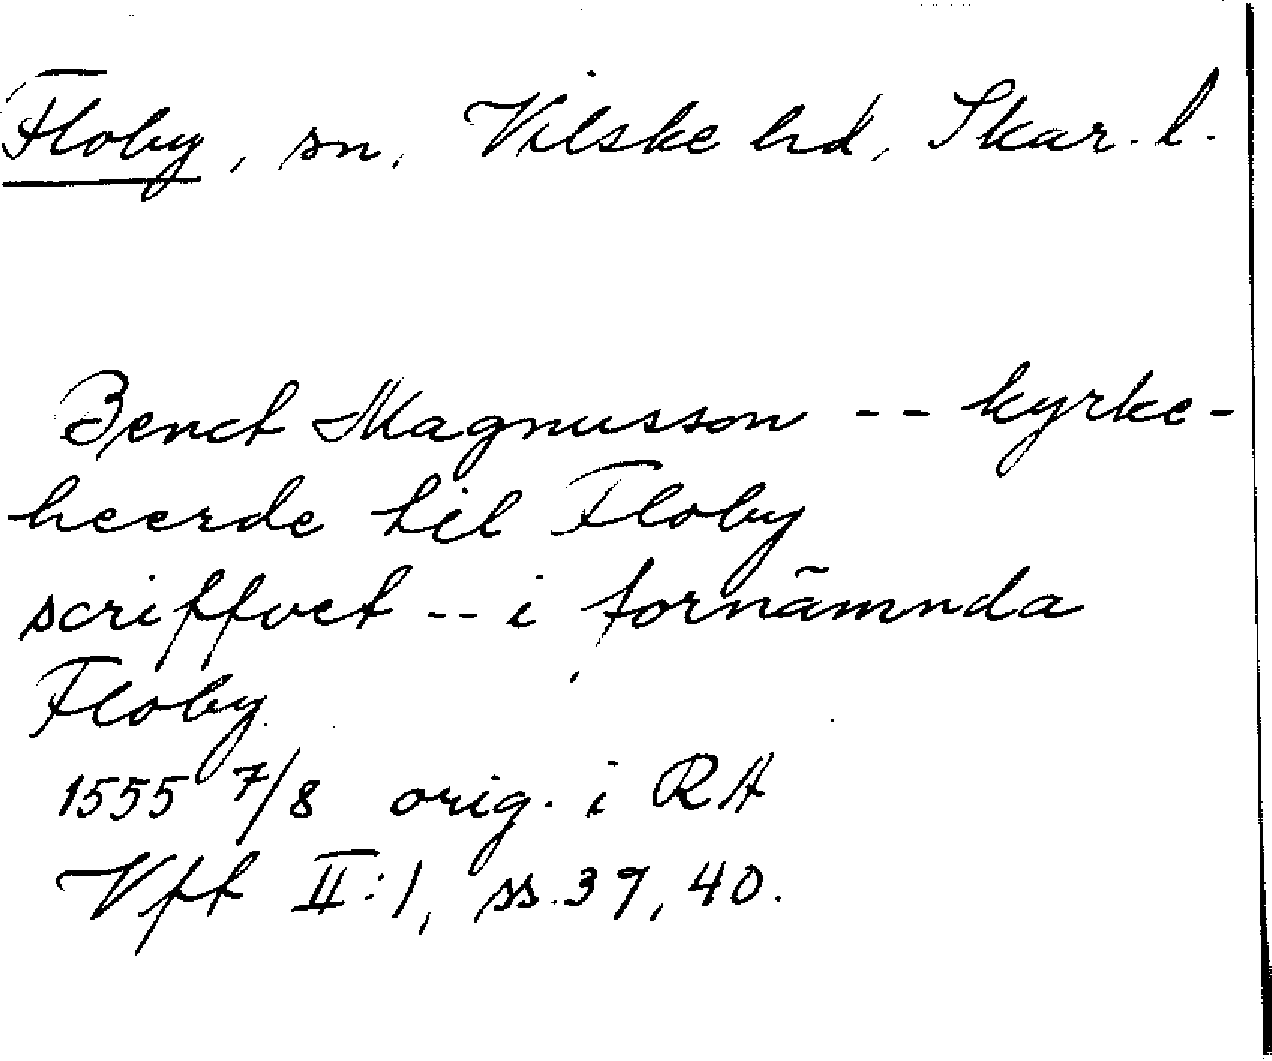 Floby, sn. Vilske hd, Skar. l.
Benct Magnusson -- kyrke-
heerde til Floby
scriffvet -- i fornämnda
Floby
1555 7/8 orig. i RA
Vft II:1, ss. 39, 40.